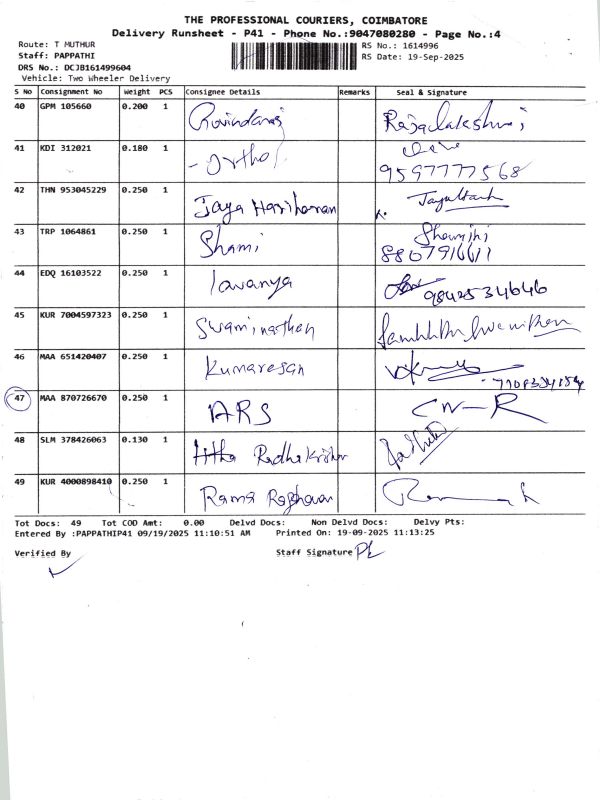 THE PROFESSIONAL COURIERS, COIMBATORE
Delivery Runsheet - P41 - Phone No.:9047080280 - Page No.:4
Route: T MUTHUR
RS No.: 1614996
Staff: PAPPATHI
RS Date: 19-Sep-2025
DRS No.: DCJB161499604
Vehicle: Two Wheeler Delivery
S No Consignment No Weight PCS Consignee Details Remarks Seal & Signature
40 GPM 105660 0.200 1 Govindaraj Rajalakshmi
41 KDI 312021 0.180 1 - Ortho 9597777568
42 THN 953045229 0.250 1 Jaya Hariharan
43 TRP 1064861 0.250 1 Shami 8807916611
44 EDQ 16103522 0.250 1 lavanya 9842534646
45 KUR 7004597323 0.250 1 Swaminathan
46 MAA 651420407 0.250 1 Kumaresan
47 MAA 870726670 0.250 1 ARS
48 SLM 378426063 0.130 1 Radha Krishnan
49 KUR 4000898410 0.250 1 Rama Raghavan
Tot Docs: 49 Tot COD Amt: 0.00 Delvd Docs: Non Delvd Docs: Delvy Pts:
Entered By :PAPPATHIP41 09/19/2025 11:10:51 AM Printed On: 19-09-2025 11:13:25
Verified By Staff Signature